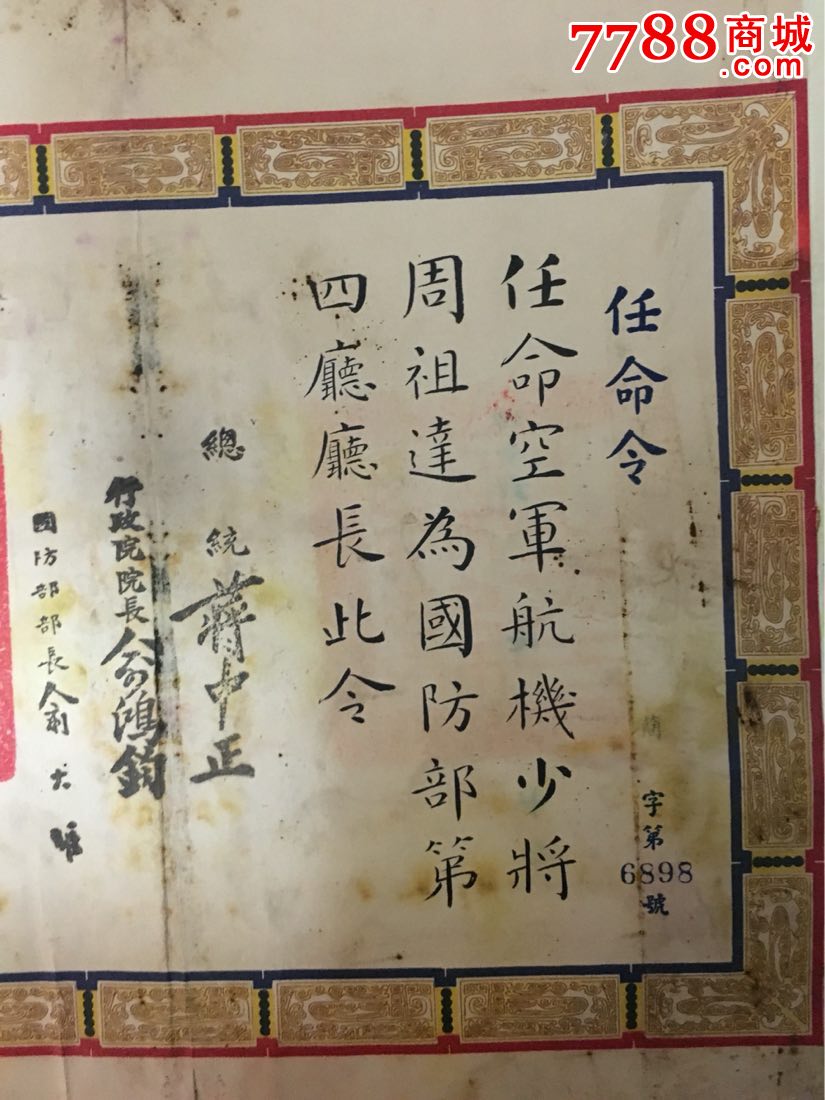 7788商城
.com
任命令
字第
6898
號
任命空軍航機少將
周祖達為國防部第
四廳廳長此令
總統蔣中正
行政院院長俞鴻鈞
國防部部長俞大維